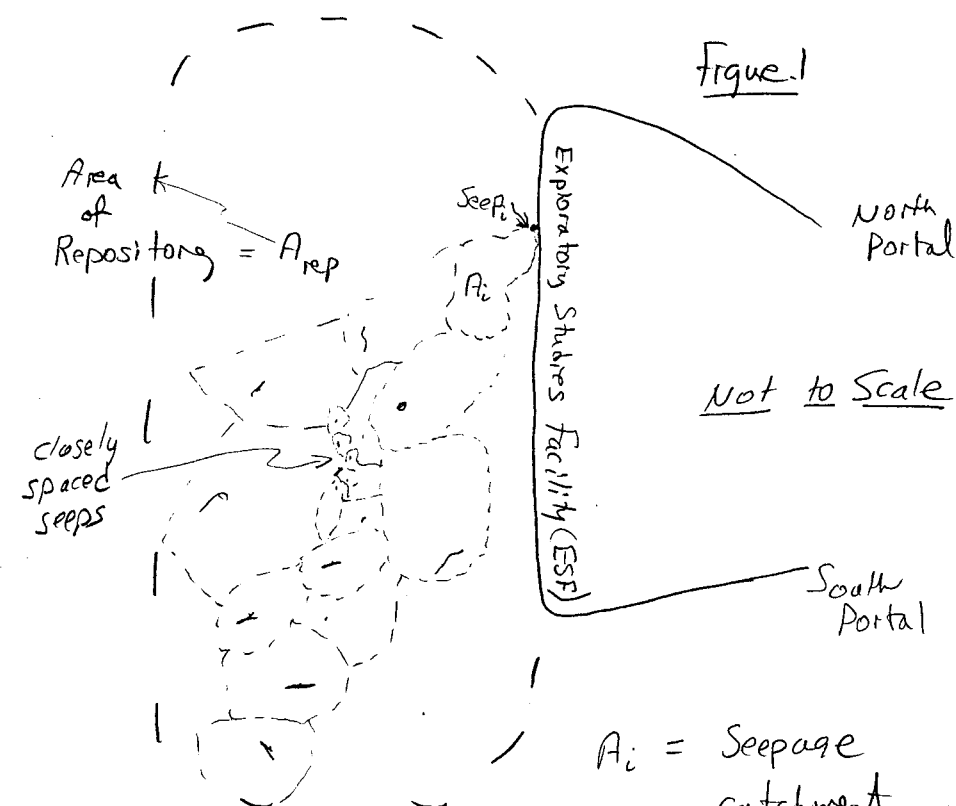 Figure.1
Area
of
Repository = A_rep
Seep_i
A_i
Exploratory Studies Facility (ESF)
North
Portal
Not to Scale
closely
spaced
seeps
South
Portal
A_i = Seepage
catchment